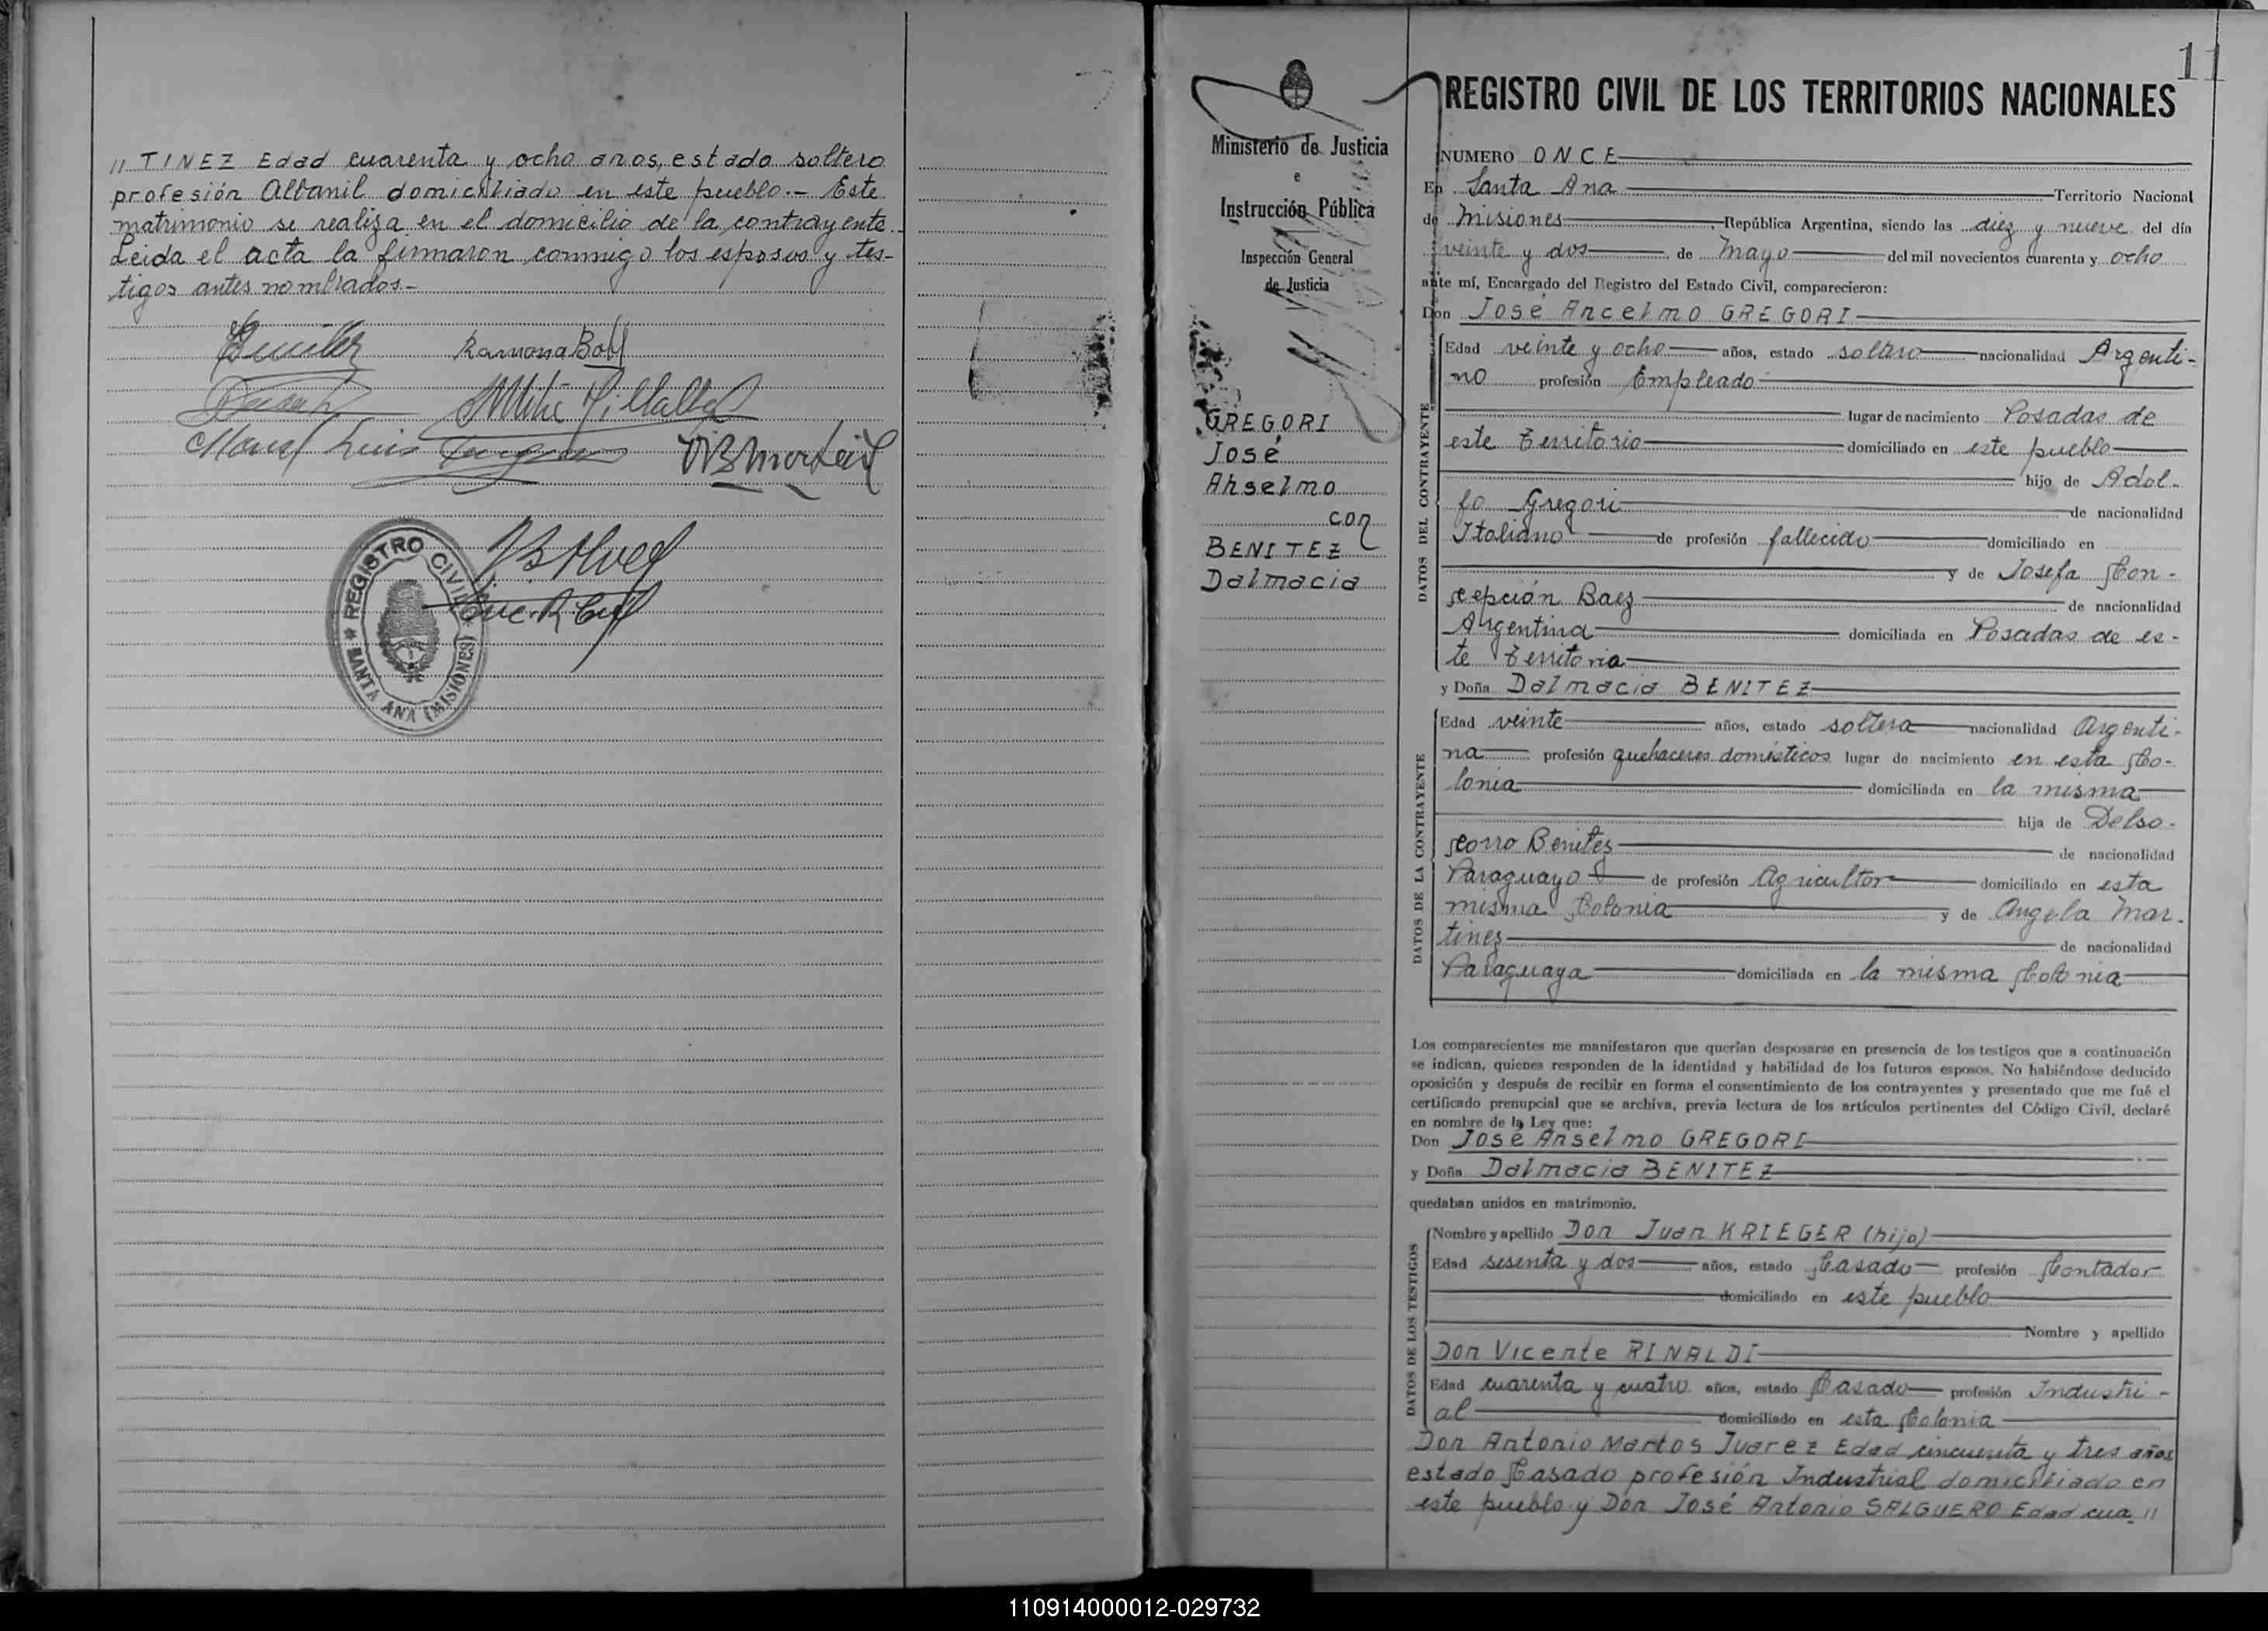 " TINEZ Edad cuarenta y ocho anos, estado soltero
profesión Albanil domiciliado en este pueblo.- Este
matrimonio se realiza en el domicilio de la contrayente.-
Leida el acta la firmaron conmigo los esposos y tes-
tigos antes nombrados.-
Ramona Bobl
Manuel Luis
REGISTRO CIVIL
SANTA ANA (MISIONES)
11
Ministerio de Justicia
e
Instrucción Pública
Inspección General
de Justicia
GREGORI
José
Anselmo
con
BENITEZ
Dalmacia
REGISTRO CIVIL DE LOS TERRITORIOS NACIONALES
NUMERO ONCE
En Santa Ana Territorio Nacional
de Misiones República Argentina, siendo las diez y nueve del día
veinte y dos de Mayo del mil novecientos cuarenta y ocho
ante mí, Encargado del Registro del Estado Civil, comparecieron:
Don José Ancelmo GREGORI
DATOS DEL CONTRAYENTE
Edad veinte y ocho años, estado soltero nacionalidad Argenti-
no profesión Empleado
lugar de nacimiento Posadas de
este Territorio domiciliado en este pueblo
hijo de Adol-
fo Gregori de nacionalidad
Italiano de profesión fallecido domiciliado en
y de Josefa Con-
cepción Baez de nacionalidad
Argentina domiciliada en Posadas de es-
te Territorio
y Doña Dalmacia BENITEZ
DATOS DE LA CONTRAYENTE
Edad veinte años, estado soltera nacionalidad Argenti-
na profesión quehaceres domésticos lugar de nacimiento en esta Co-
lonia domiciliada en la misma
hija de Delso-
corro Benitez de nacionalidad
Paraguayo de profesión Agricultor domiciliado en esta
misma Colonia y de Angela Mar-
tinez de nacionalidad
Paraguaya domiciliada en la misma Colonia
Los comparecientes me manifestaron que querían desposarse en presencia de los testigos que a continuación
se indican, quienes responden de la identidad y habilidad de los futuros esposos. No habiéndose deducido
oposición y después de recibir en forma el consentimiento de los contrayentes y presentado que me fué el
certificado prenupcial que se archiva, previa lectura de los artículos pertinentes del Código Civil, declaré
en nombre de la Ley que:
Don José Anselmo GREGORI
y Doña Dalmacia BENITEZ
quedaban unidos en matrimonio.
DATOS DE LOS TESTIGOS
Nombre y apellido Don Juan KRIEGER (hijo)
Edad sesenta y dos años, estado Casado profesión Contador
domiciliado en este pueblo
Nombre y apellido
Don Vicente RINALDI
Edad cuarenta y cuatro años, estado Casado profesión Industri-
al domiciliado en esta Colonia
Don Antonio Martos Juarez Edad cincuenta y tres años
estado Casado profesión Industrial domiciliado en
este pueblo y Don José Antonio SALGUERO Edad cua- "
110914000012-029732